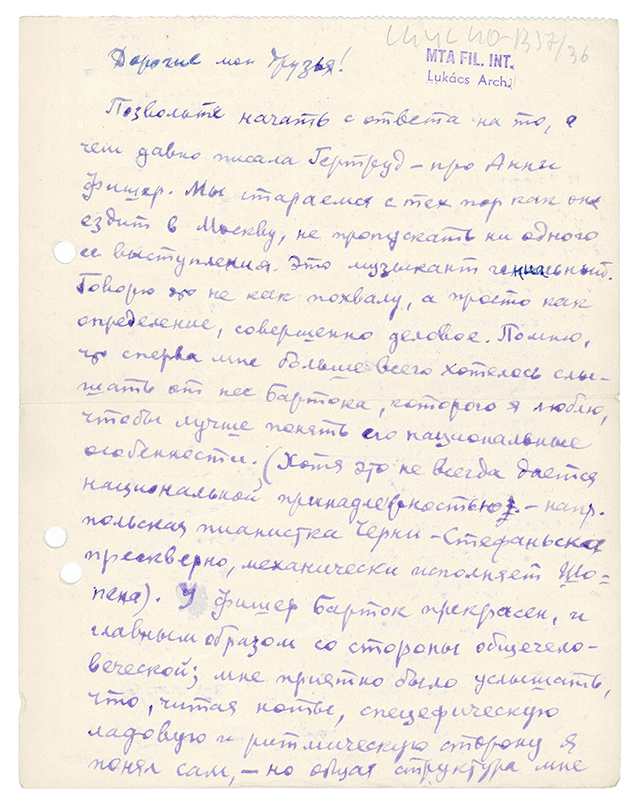 Дорогие мои друзья!
MTA FIL. INT.
Lukács Arch.
Позвольте начать с ответа на то, о
чем давно писала Гертруд – про Анни
Фишер. Мы стараемся с тех пор как она
ездит в Москву, не пропускать ни одного
ее выступления. Это музыкант гениальный.
Говорю это не как похвалу, а просто как
определение, совершенно деловое. Помню,
что сперва мне больше всего хотелось слы-
шать от нее Бартока, которого я люблю,
чтобы лучше понять его национальные
особенности. (Хотя это не всегда дается
национальной принадлежностью – напр.
польская пианистка Черни-Стефаньска
прескверно, механически исполняет Шо-
пена). У Фишер Барток прекрасен, и
главным образом со стороны общечело-
веческой; мне приятно было услышать,
что, читая ноты, спецефическую
ладовую и ритмическую сторону я
понял сам, – но общая структура мне